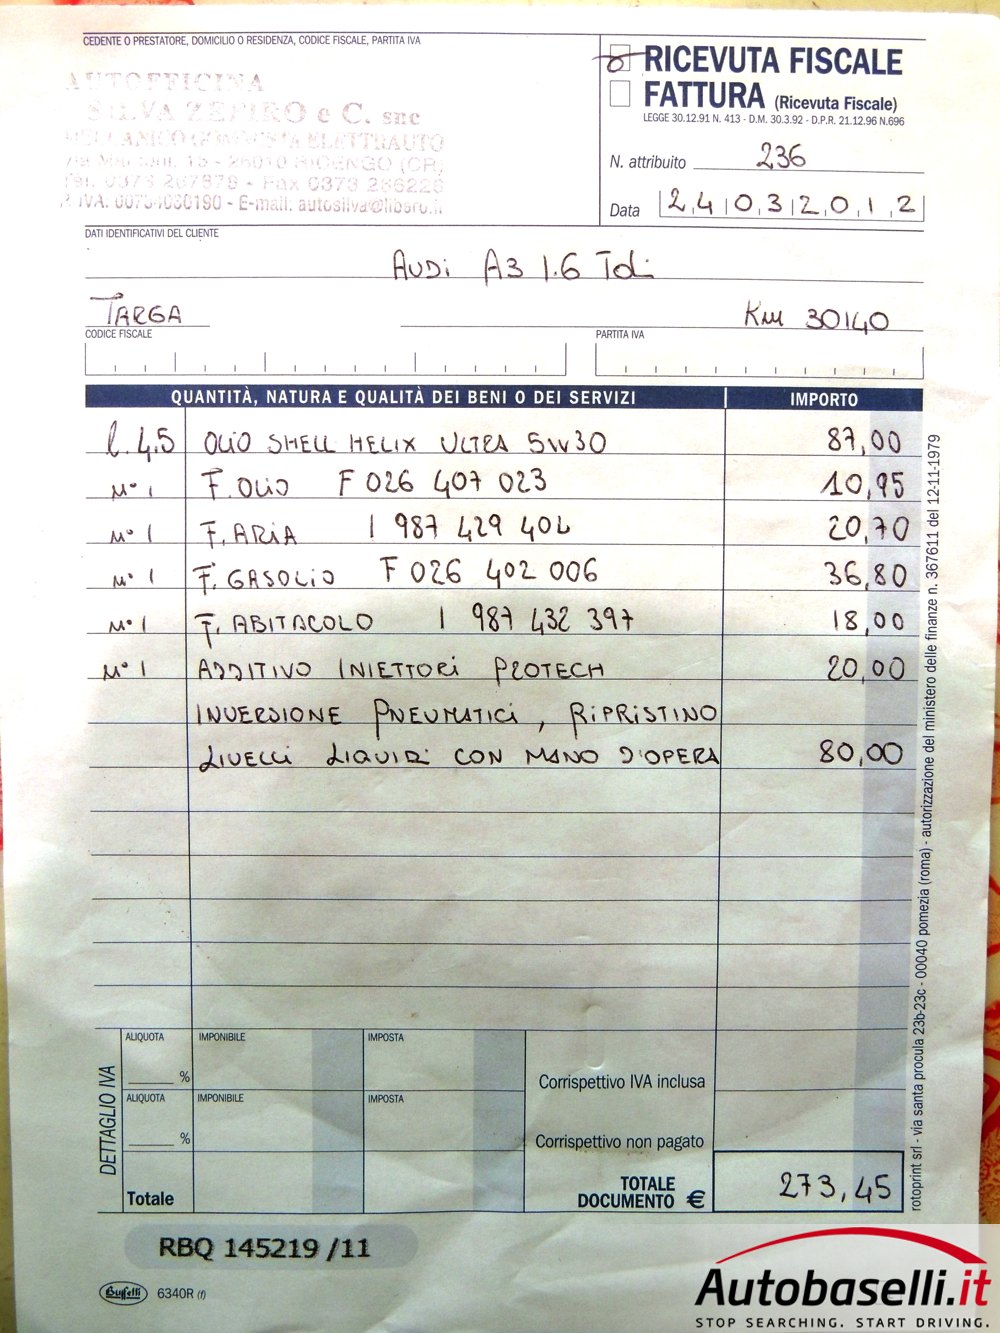 CEDENTE O PRESTATORE, DOMICILIO O RESIDENZA, CODICE FISCALE, PARTITA IVA
AUTOFFICINA
SILVA ZEFIRO e C. snc
MECCANICO GOMMISTA ELETTRAUTO
15 - 26010 RICENGO (CR)
Tel. 0373 267878 - Fax 0373 286226
P. IVA: - E-mail: autosilva@libero.it
RICEVUTA FISCALE
FATTURA (Ricevuta Fiscale)
LEGGE 30.12.91 N. 413 - D.M. 30.3.92 - D.P.R. 21.12.96 N.696
N. attribuito 236
Data 24 03 2012
DATI IDENTIFICATIVI DEL CLIENTE
AUDI A3 1.6 Tdi
TARGA Km 30140
CODICE FISCALE PARTITA IVA
QUANTITÀ, NATURA E QUALITÀ DEI BENI O DEI SERVIZI IMPORTO
l. 4,5 OLIO SHELL HELIX ULTRA 5W30 87,00
N° 1 F. OLIO F 026 407 023 10,95
N° 1 F. ARIA 1 987 429 404 20,70
N° 1 F. GASOLIO F 026 402 006 36,80
N° 1 F. ABITACOLO 1 987 432 397 18,00
N° 1 ADDITIVO INIETTORI PROTECH 20,00
INVERSIONE PNEUMATICI, RIPRISTINO
LIVELLI LIQUIDI CON MANO D'OPERA 80,00
DETTAGLIO IVA
ALIQUOTA IMPONIBILE IMPOSTA
% Corrispettivo IVA inclusa
ALIQUOTA IMPONIBILE IMPOSTA
% Corrispettivo non pagato
Totale TOTALE DOCUMENTO € 273,45
RBQ 145219 /11
Buffetti 6340R (f)
rotoprint srl - via santa procula 23b-23c - 00040 pomezia (roma) - autorizzazione del ministero delle finanze n. 367611 del 12-11-1979
Autobaselli.it
STOP SEARCHING. START DRIVING.